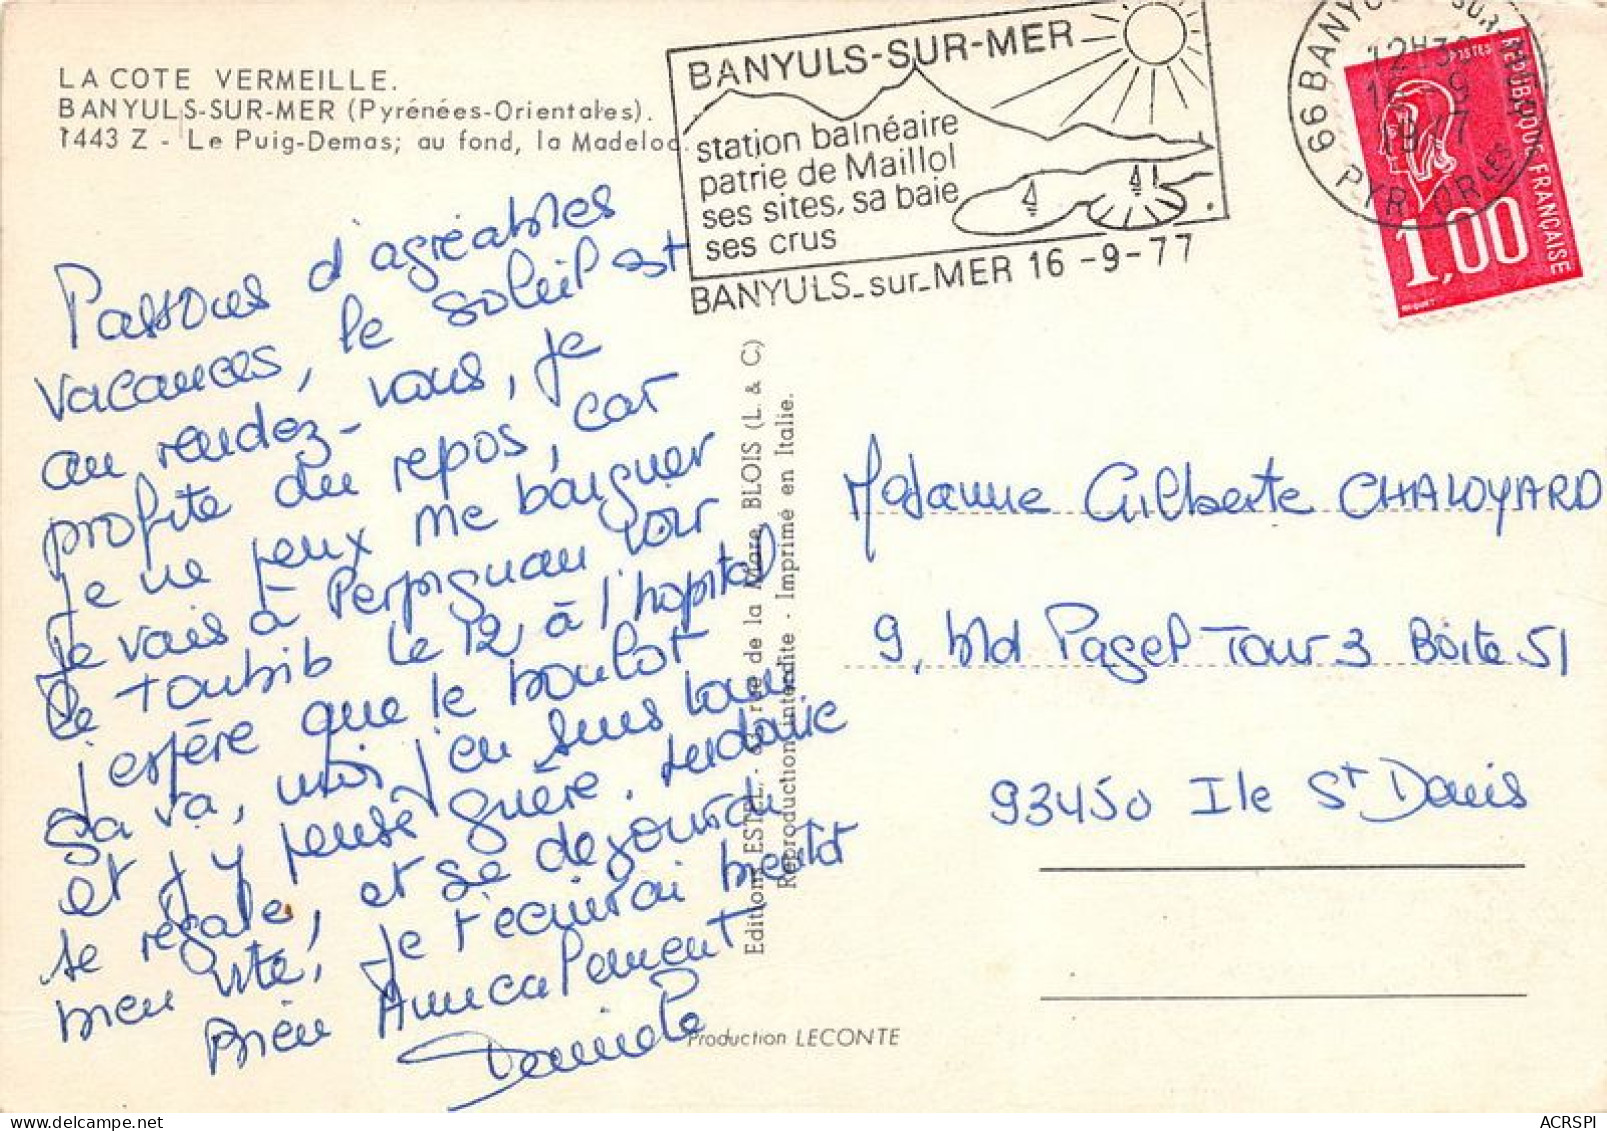 LA COTE VERMEILLE.
BANYULS-SUR-MER (Pyrénées-Orientales).
1443 Z - Le Puig-Demas; au fond, la Madeloc.
BANYULS-SUR-MER
station balnéaire
patrie de Maillol
ses sites, sa baie
ses crus
BANYULS_sur_MER 16 -9-77
66 BANYULS SUR MER
12H30
16-9
1977
PYR. ORLES
POSTES
REPUBLIQUE FRANÇAISE
1,00
Passons d'agréables
vacances, le soleil est
au rendez-vous, je
profite du repos, car
je ne peux me baigner
je vais à Perpignan voir
le toubib le 12 à l'hopital
j'espère que le boulot
ça va, moi j'en suis loin
et j'y pense guère.
se régale, et se dégourdi
bien vite, je t'écrirai bientot
Bien Amicalement
Daniele
Editions ESTEL - rue de la Mare BLOIS (L. & C)
Reproduction interdite - Imprimé en Italie.
Production LECONTE
Madame Gilberte CHALOYARD
9, bld Pagel Tour 3 Boite 51
93450 Ile St Denis
ACRSPI